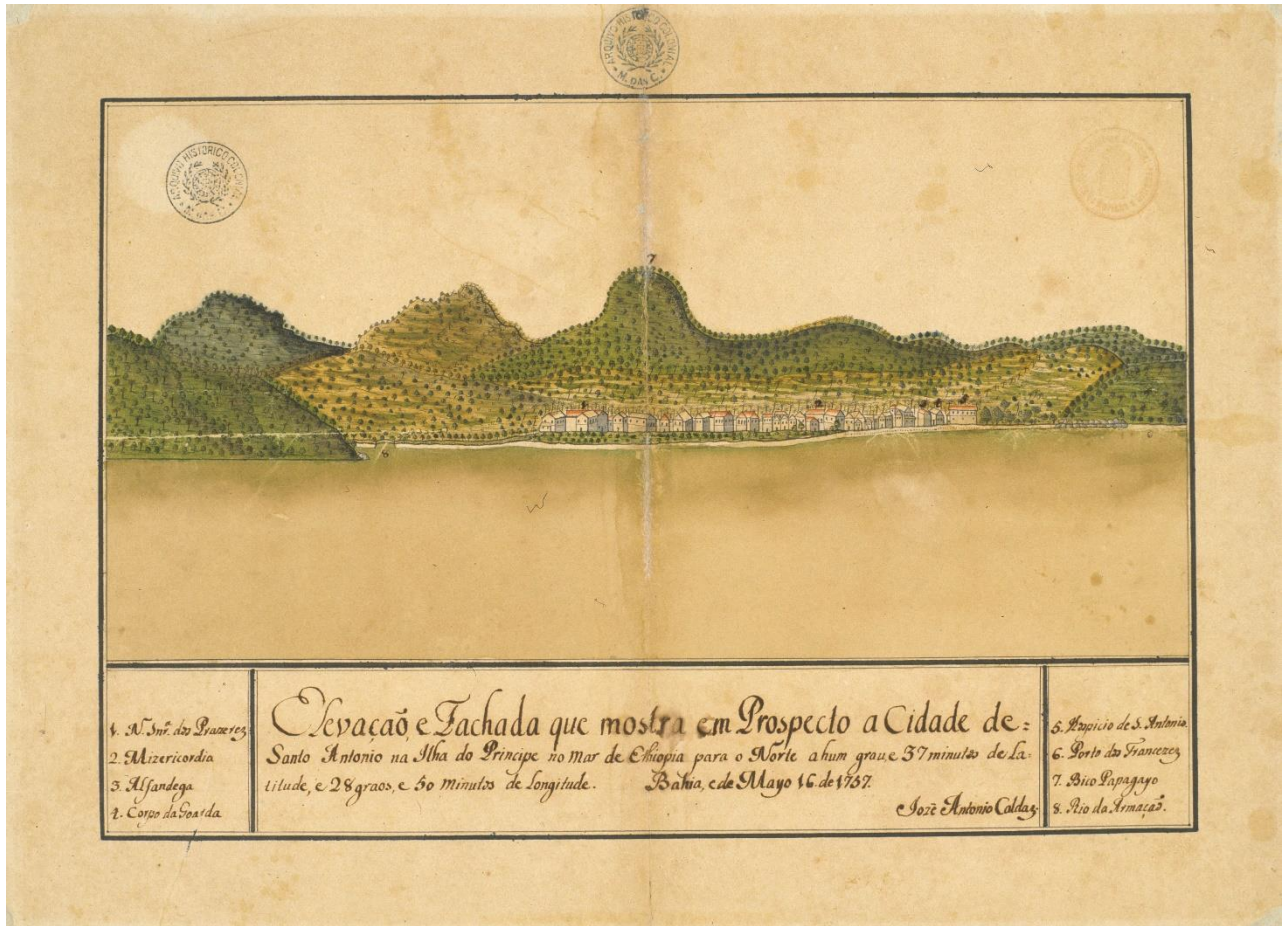 ARQUIVO HISTORICO COLONIAL
M. DAS C.
ARQUIVO HISTORICO COLONIAL
7
8
1. N. Snrª. dos Prazerez
2. Mizericordia
3. Alfandega
4. Corpo da Goarda
Elevação, e Fachada que mostra em Prospecto a Cidade de=
Santo Antonio na Ilha do Principe no Mar de Ethiopia para o Norte a hum grau, e 37 minutos de La-
titude, e 28 graos, e 50 minutos de Longitude. Bahia, e de Mayo 16. de 1757.
Jozè Antonio Caldaz
5. Hospicio de S. Antonio.
6. Porto dos Francezez
7. Bico Papagayo
8. Rio da Armação.